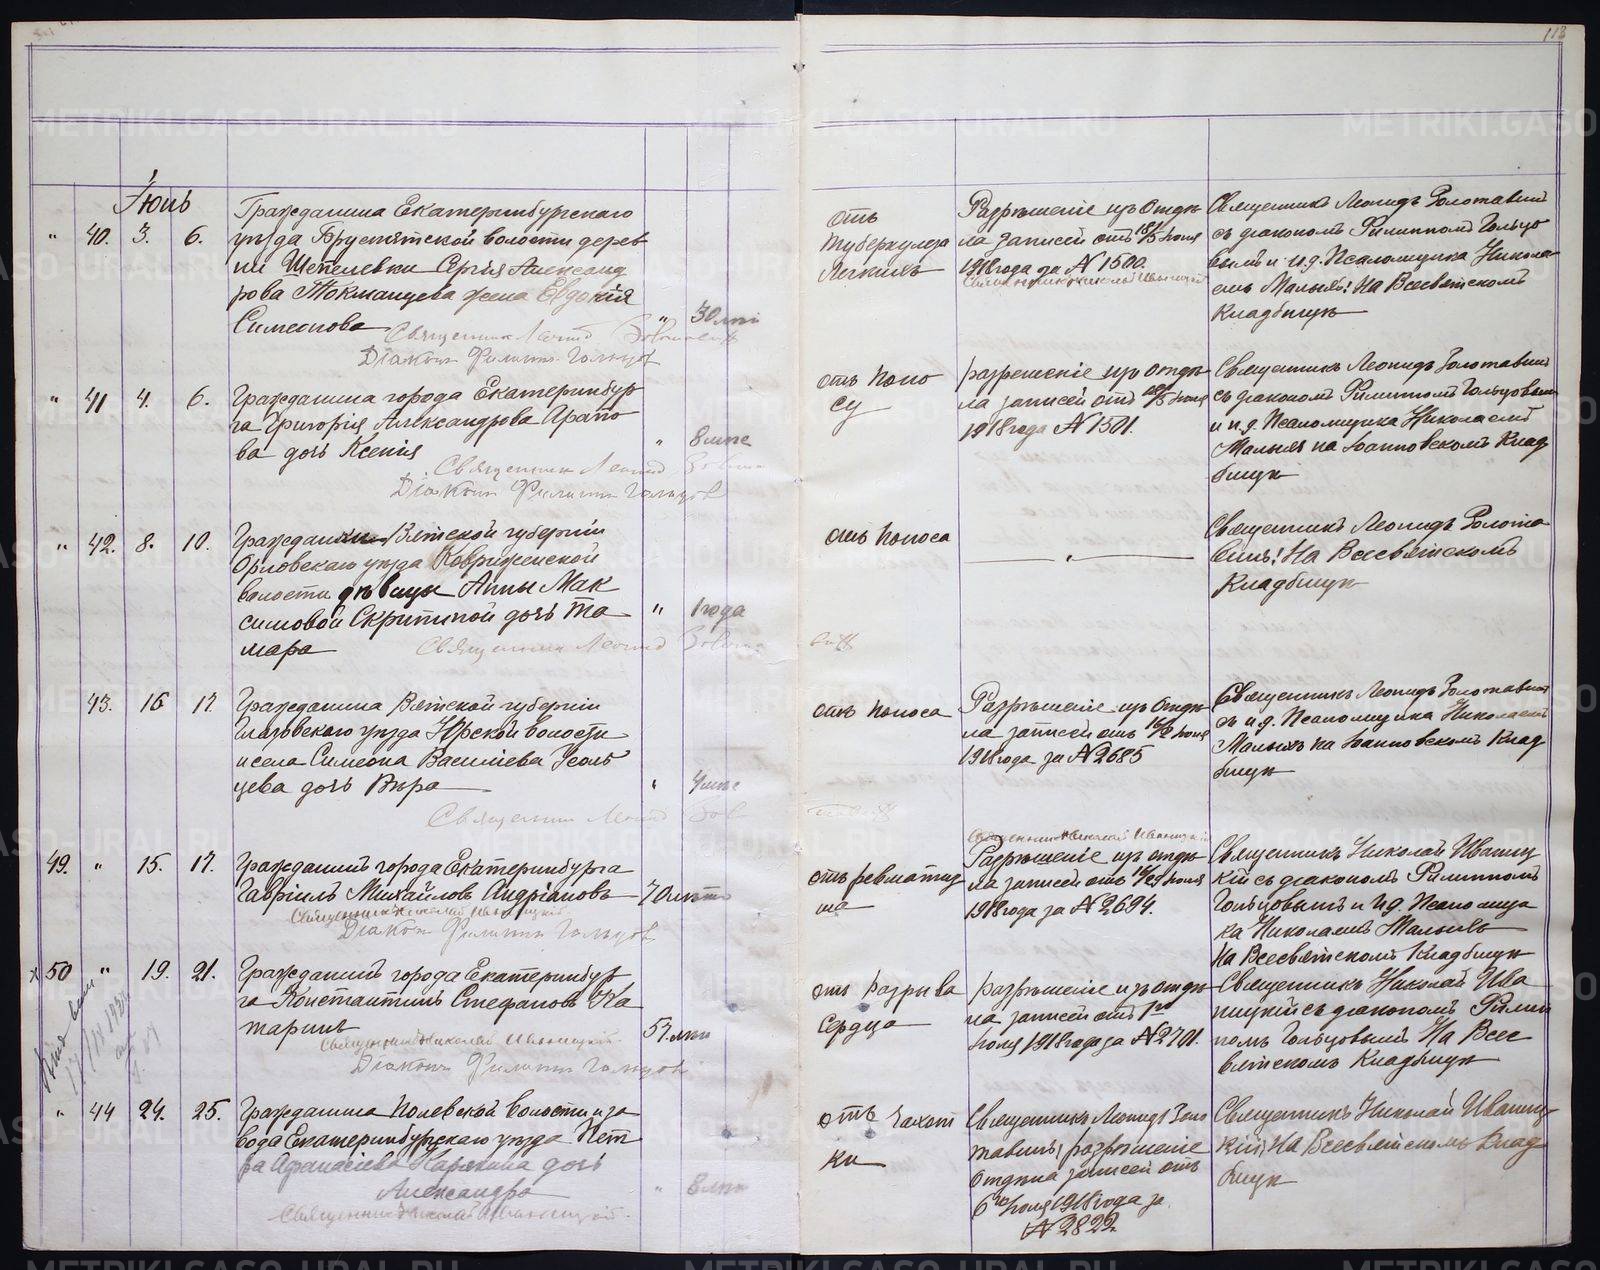 113
Іюнь
" 40. 3. 6.
Гражданина Екатеринбургскаго
уѣзда Брусятской волости дерев
ни Шепелевки Сергія Александ
рова Токманцева жена Евдокія
Симеонова
" 30 лѣт
Священник Леонид
Діаконъ Филиппъ Гольцов
отъ
туберкулеза
Легкихъ
Разрѣшеніе изъ Отдѣ
ла записей отъ 18/5 Іюня
1918 года за № 1500.
Священник Николай Иваницкій
Священникъ Леонидъ Золотавинъ
съ діакономъ Филиппомъ Гольцо
вымъ и и.д. Псаломщика Никола
емъ Малыхъ! На Всесвятскомъ
Кладбищѣ
" 41 4. 6.
Гражданина города Екатеринбур
га Григорія Александрова Арапо
ва дочь Ксенія
" 8 мѣс
Священник Леонид
Діаконъ Филиппъ Гольцов
отъ поно
су
разрешеніе изъ отдѣ
ла записей отъ 18/5 Іюня
1918 года № 1501.
Священникъ Леонидъ Золотавинъ
съ діакономъ Филиппомъ Гольцовым
и и.д. Псаломщика Николаемъ
Малыхъ на Іоанновскомъ Клад
бищѣ
" 42. 8. 10.
Вятской губерніи
Орловскаго уѣзда
волости дѣвицы Анны Мак
симовой Скрипиной дочь Та
мара
" 1 года
Священник Леонид
отъ поноса
"
Священникъ Леонидъ Золота
винъ! На Всесвятскомъ
Кладбищѣ
43. 16 17
Гражданина Вятской губерніи
Глазовскаго уѣзда волости
и села Симеона Василіева Усоль
цева дочь Вѣра
" 4 мѣс
Священник Леонид
отъ поноса
Разрѣшеніе изъ отдѣ
ла записей отъ Іюня
1918 года за № 2685
Священникъ Леонидъ Золотавинъ
съ и.д. Псаломщика Николаемъ
Малыхъ на Іоанновскомъ Клад
бищѣ
49. " 15. 17.
Гражданинъ города Екатеринбурга
Гавріилъ Михайловъ Андріановъ
70 лѣтъ
Священник Николай Иваницкій
Діаконъ Филиппъ Гольцов
отъ ревматиз
ма
Священник Николай Иваницкій
Разрѣшеніе изъ отдѣ
ла записей отъ Іюня
1918 года за № 2694.
Священникъ Николай Иваниц
кій съ діакономъ Филиппомъ
Гольцовымъ и и.д. Псаломщи
ка Николаемъ Малыхъ
На Всесвятскомъ Кладбищѣ
х 50 " 19. 21.
Гражданинъ города Екатеринбур
га Константинъ Стефановъ Ка
таринъ
57 лѣт
Священник Николай Иваницкій.
Діаконъ Филиппъ Гольцов
отъ разрыва
сердца
разрѣшеніе изъ отдѣ
ла записей отъ 1го
Іюля 1918 года за № 2701.
Священникъ Николай Ива
ницкій съ діакономъ Филип
помъ Гольцовымъ На Всес
вятскомъ Кладбищѣ
" 44 24. 25.
Гражданина Полевской волости и за
вода Екатеринбургскаго уѣзда Пет
ра Афанасіева Карякина дочь
Александра
" 8 лѣт
Священник Николай Иваницкій.
отъ чахот
ки
Священникъ Леонидъ Золо
тавинъ разрѣшеніе
отдѣла записей отъ
6го Іюля 1918 года за
№ 2822
Священникъ Николай Иваниц
кій! На Всесвятскомъ Клад
бищѣ
METRIKI.GASO-URAL.RU